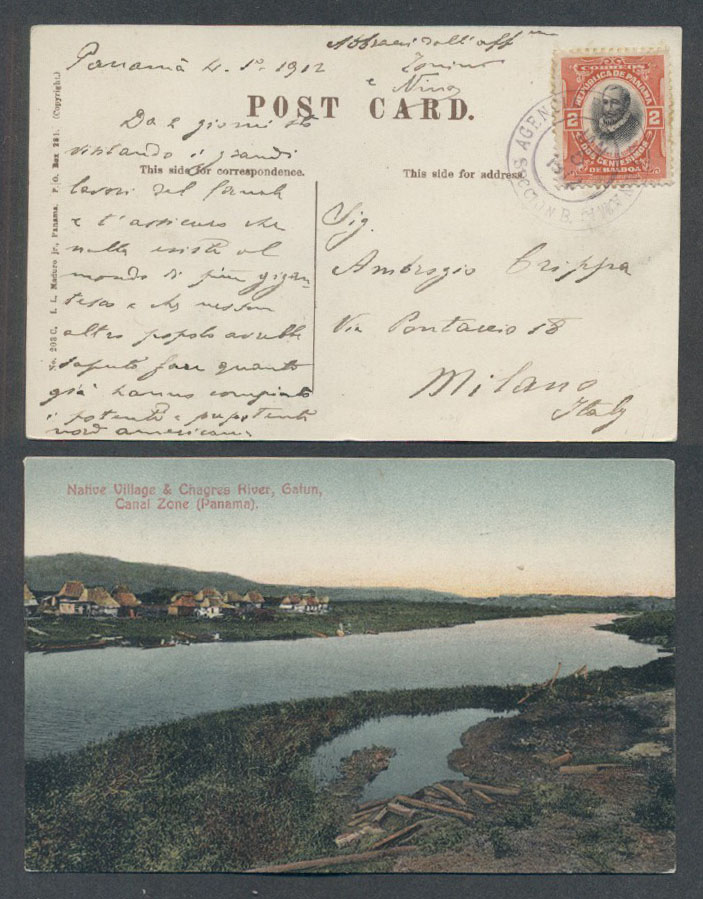 Panamá 4. 1º 1912
Abbracci dall'aff
Tonino
e
Nino
POST CARD.
CORREOS
REPUBLICA DE PANAMA
2 2
DOS CENTESIMOS
DE BALBOA
AGENC
This side for correspondence.
This side for address.
No. 203 C, I. L. Maduro jr., Panama. P. O. Box 281. (Copyright.)
Da 2 giorni sto
visitando i grandi
lavori del Canale
e t'assicuro che
nulla esiste al
mondo di più gigan-
tesco e che nessun
altro popolo avrebbe
saputo fare quanto
già hanno compiuto
i potenti e
nord americani
Sig.
Ambrogio Crippa
Via Pontaccio 18
Milano
Italy
Native Village & Chagres River, Gatun,
Canal Zone (Panama).